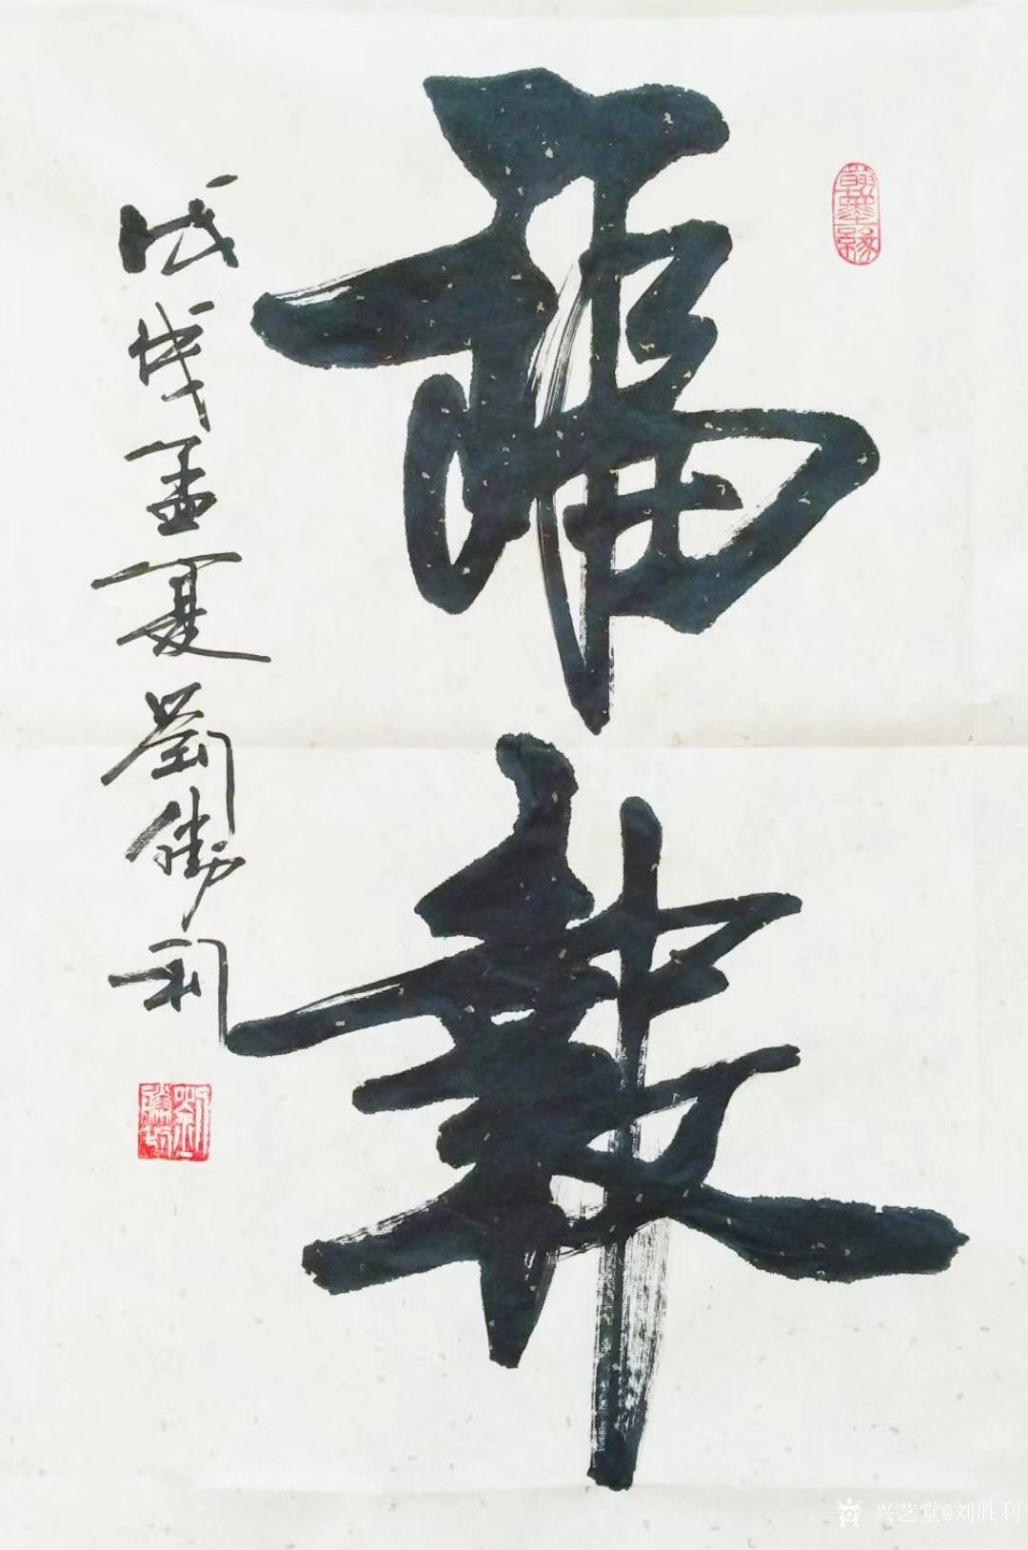 福報
戊戌孟夏劉勝利
翰墨緣
劉勝利
兴艺堂@刘胜利